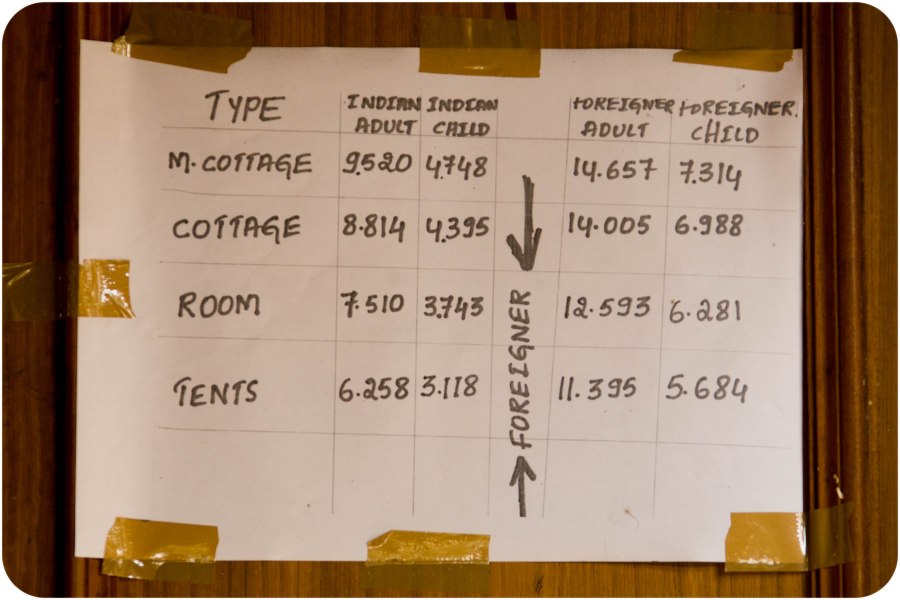 TYPE INDIAN ADULT INDIAN CHILD FOREIGNER ADULT FOREIGNER. CHILD
M. COTTAGE 9.520 4.748 14.657 7.314
COTTAGE 8.814 4.395 14.005 6.988
ROOM 7.510 3.743 12.593 6.281
TENTS 6.258 3.118 11.395 5.684
FOREIGNER